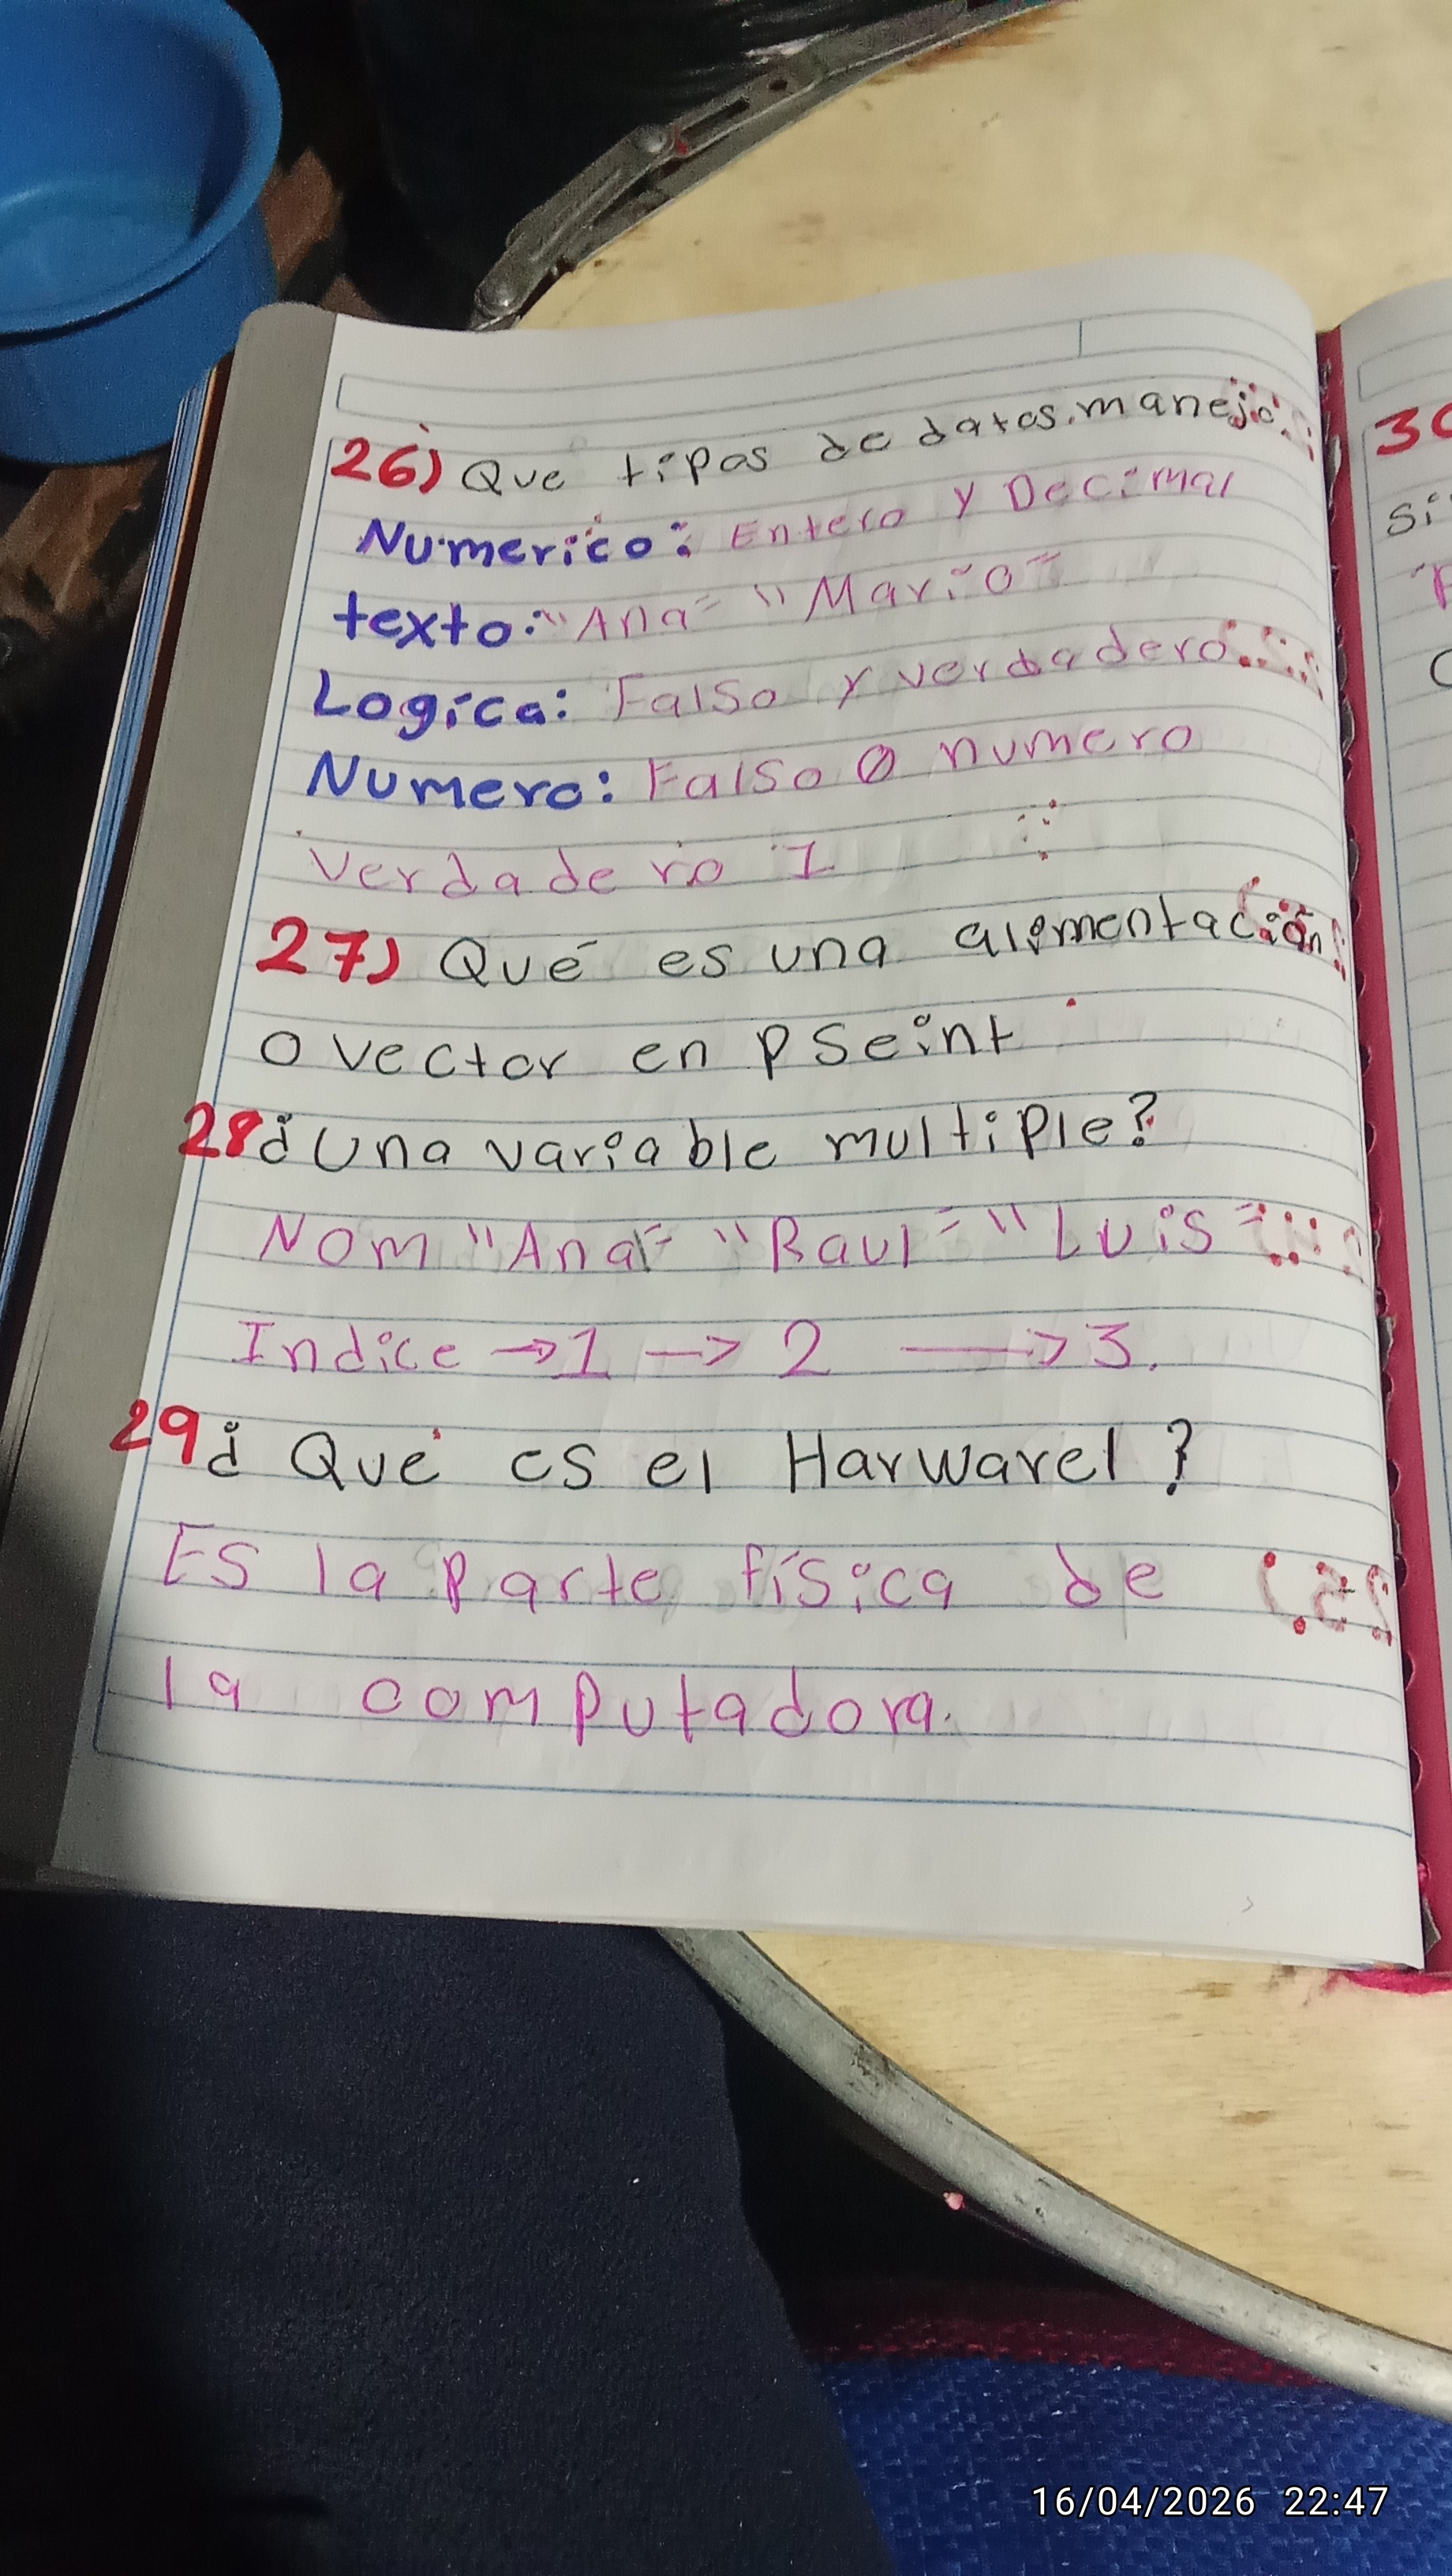 26) Que tipos de datos. manejo
Numerico: Entero y Decimal
texto: "Ana" "Mario"
Logica: Falso y verdadero
Numero: Falso 0 numero
Verdadero 1
27) Qué es una alimentación
o vector en pseint
28 ¿Una variable multiple?
Nom "Ana" "Raul" "Luis"
Indice → 1 → 2 → 3.
29 ¿Qué es el Harwarel?
Es la Parte física de
la computadora.
Si
16/04/2026 22:47